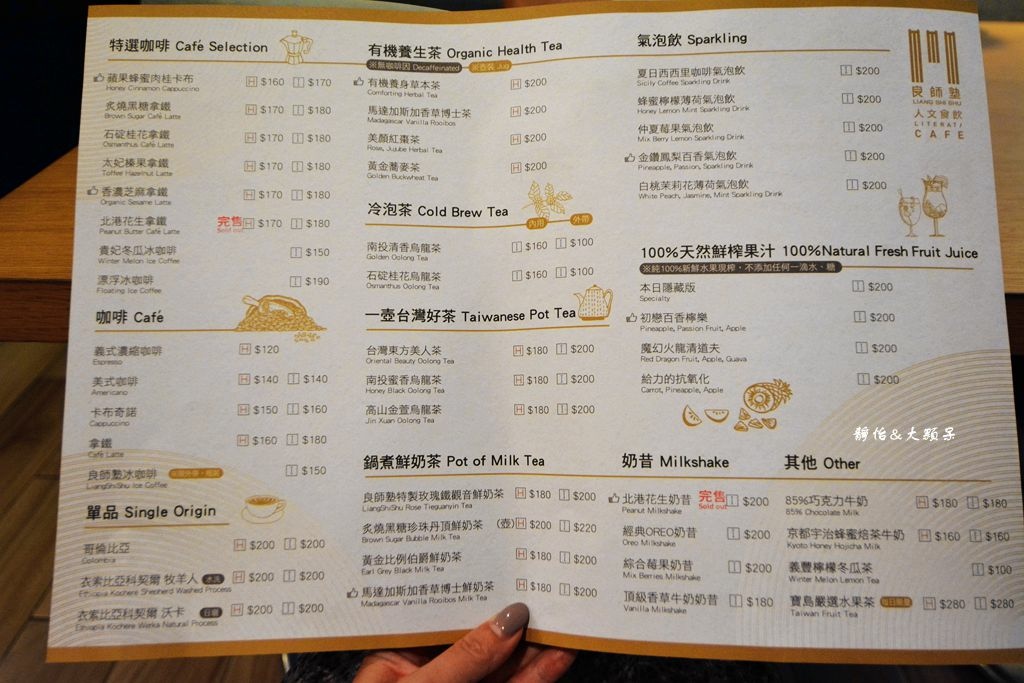 特選咖啡 Café Selection
蘋果蜂蜜肉桂卡布 H $160 I $170
Honey Cinnamon Cappuccino
炙燒黑糖拿鐵 H $170 I $180
Brown Sugar Café Latte
石碇桂花拿鐵 H $170 I $180
Osmanthus Café Latte
太妃榛果拿鐵 H $170 I $180
Toffee Hazelnut Latte
香濃芝麻拿鐵 H $170 I $180
Organic Sesame Latte
北港花生拿鐵 完售 H $170 I $180
Peanut Butter Café Latte Sold out
貴妃冬瓜冰咖啡 I $150
Winter Melon Ice Coffee
漂浮冰咖啡 I $190
Floating Ice Coffee
咖啡 Café
義式濃縮咖啡 H $120
Espresso
美式咖啡 H $140 I $140
Americano
卡布奇諾 H $150 I $160
Cappuccino
拿鐵 H $160 I $180
Café Latte
良師塾冰咖啡 I $150
LiangShiShu Ice Coffee
單品 Single Origin
哥倫比亞 H $200 I $200
Colombia
衣索比亞科契爾 牧羊人 水洗 H $200 I $200
Ethiopia Kochere Shepherd Washed Process
衣索比亞科契爾 沃卡 日曬 H $200 I $200
Ethiopia Kochere Werka Natural Process
有機養生茶 Organic Health Tea
※無咖啡因 Decaffeinated ※壺裝 Jug
有機養身草本茶 H $200
Comforting Herbal Tea
馬達加斯加香草博士茶 H $200
Madagascar Vanilla Rooibos
美顏紅棗茶 H $200
Rose, Jujube Herbal Tea
黃金蕎麥茶 H $200
Golden Buckwheat Tea
冷泡茶 Cold Brew Tea
內用 外帶
南投清香烏龍茶 I $160 I $100
Golden Oolong Tea
石碇桂花烏龍茶 I $160 I $100
Osmanthus Oolong Tea
一壺台灣好茶 Taiwanese Pot Tea
台灣東方美人茶 H $180 I $200
Oriental Beauty Oolong Tea
南投蜜香烏龍茶 H $180 I $200
Honey Black Oolong Tea
高山金萱烏龍茶 H $180 I $200
Jin Xuan Oolong Tea
鍋煮鮮奶茶 Pot of Milk Tea
良師塾特製玫瑰鐵觀音鮮奶茶 H $180 I $200
LiangShiShu Rose Tieguanyin Tea
炙燒黑糖珍珠丹頂鮮奶茶 (壺) H $200 I $220
Brown Sugar Bubble Milk Tea
黃金比例伯爵鮮奶茶 H $180 I $200
Earl Grey Black Milk Tea
馬達加斯加香草博士鮮奶茶 H $180 I $200
Madagascar Vanilla Rooibos Milk Tea
氣泡飲 Sparkling
夏日西西里咖啡氣泡飲 I $200
Sicily Coffee Sparkling Drink
蜂蜜檸檬薄荷氣泡飲 I $200
Honey Lemon Mint Sparkling Drink
仲夏莓果氣泡飲 I $200
Mix Berry Lemon Sparkling Drink
金鑽鳳梨百香氣泡飲 I $200
Pineapple, Passion, Sparkling Drink
白桃茉莉花薄荷氣泡飲 I $200
White Peach, Jasmine, Mint Sparkling Drink
良師塾
LIANG SHI SHU
人文食飲
LITERATI
CAFE
100%天然鮮榨果汁 100%Natural Fresh Fruit Juice
※純100%新鮮水果現榨，不添加任何一滴水、糖
本日隱藏版 I $200
Specialty
初戀百香檸樂 I $200
Pineapple, Passion Fruit, Apple
魔幻火龍清道夫 I $200
Red Dragon Fruit, Apple, Guava
給力的抗氧化 I $200
Carrot, Pineapple, Apple
靜怡&大顆呆
奶昔 Milkshake
北港花生奶昔 完售 I $200
Peanut Milkshake Sold out
經典OREO奶昔 I $200
Oreo Milkshake
綜合莓果奶昔 I $200
Mix Berries Milkshake
頂級香草牛奶奶昔 I $180
Vanilla Milkshake
其他 Other
85%巧克力牛奶 H $180 I $180
85% Chocolate Milk
京都宇治蜂蜜焙茶牛奶 H $160 I $160
Kyoto Honey Hojicha Milk
義豐檸檬冬瓜茶 I $100
Winter Melon Lemon Tea
寶島嚴選水果茶 每日限量 H $280 I $280
Taiwan Fruit Tea